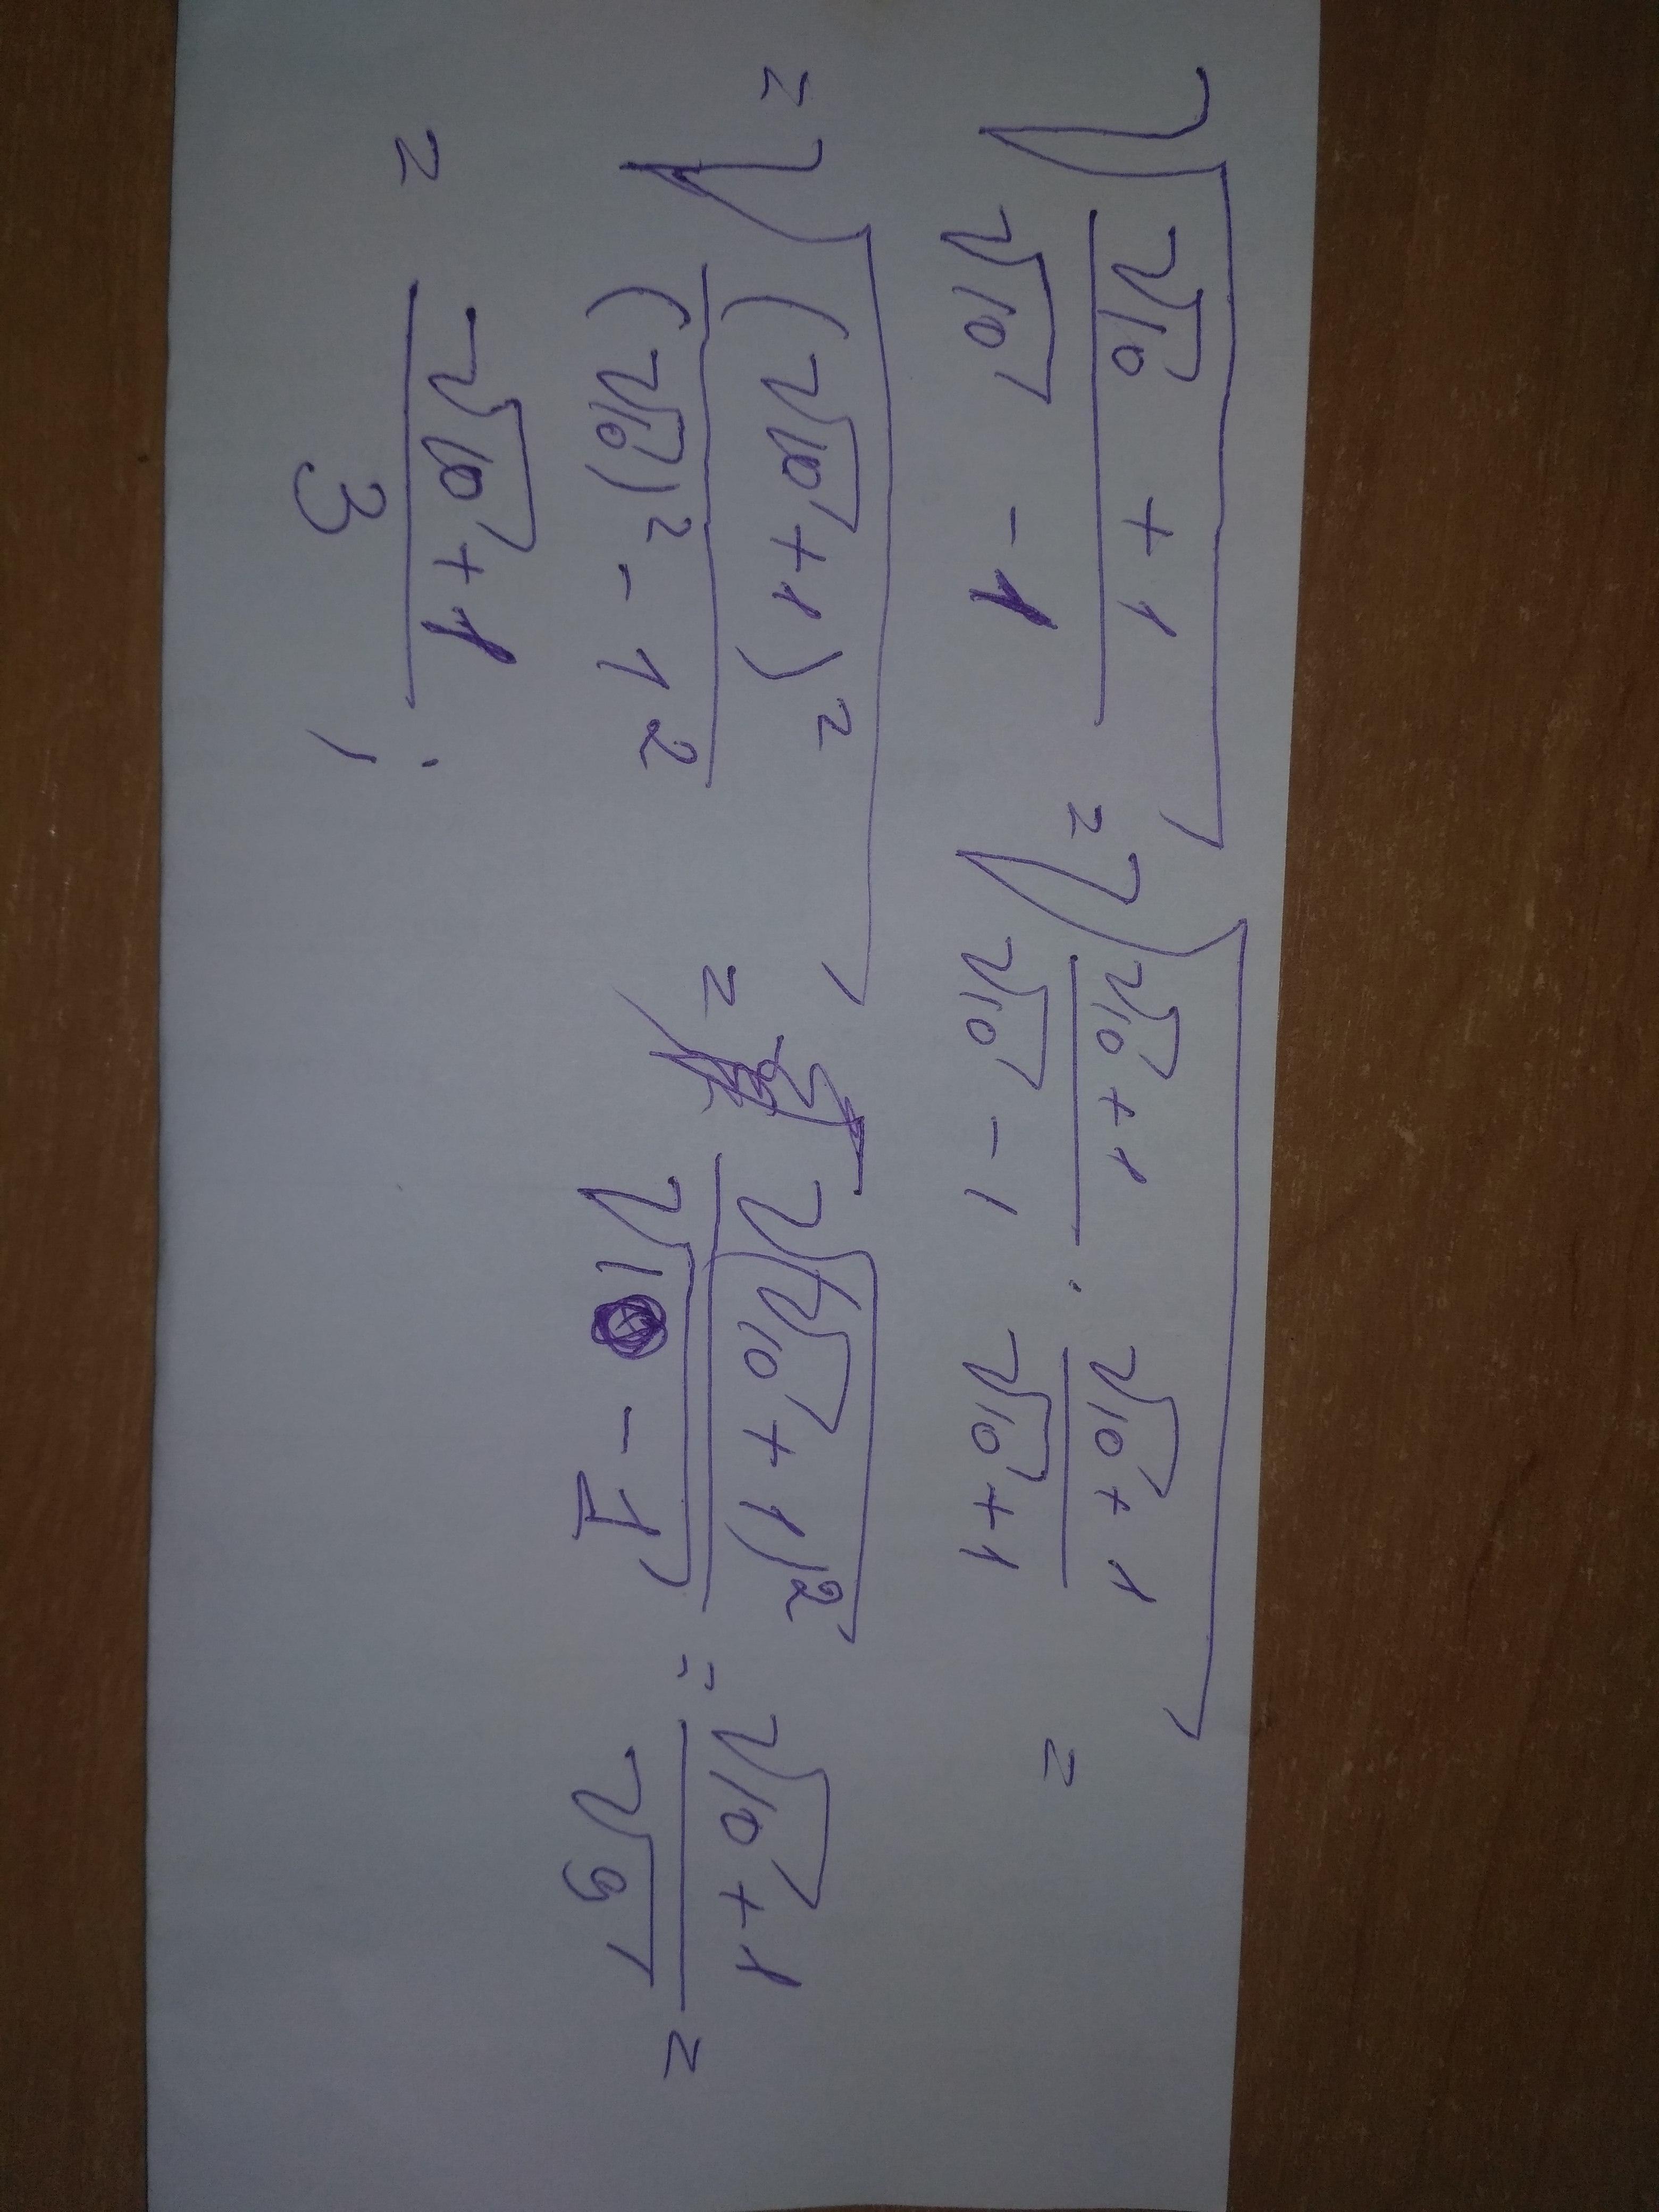 √((√10 + 1)/(√10 - 1)) = √((√10 + 1)/(√10 - 1) · (√10 + 1)/(√10 + 1)) =
= √((√10 + 1)²/((√10)² - 1²)) = √((√10 + 1)²)/√(10 - 1) = (√10 + 1)/√9 =
= (√10 + 1)/3 ;